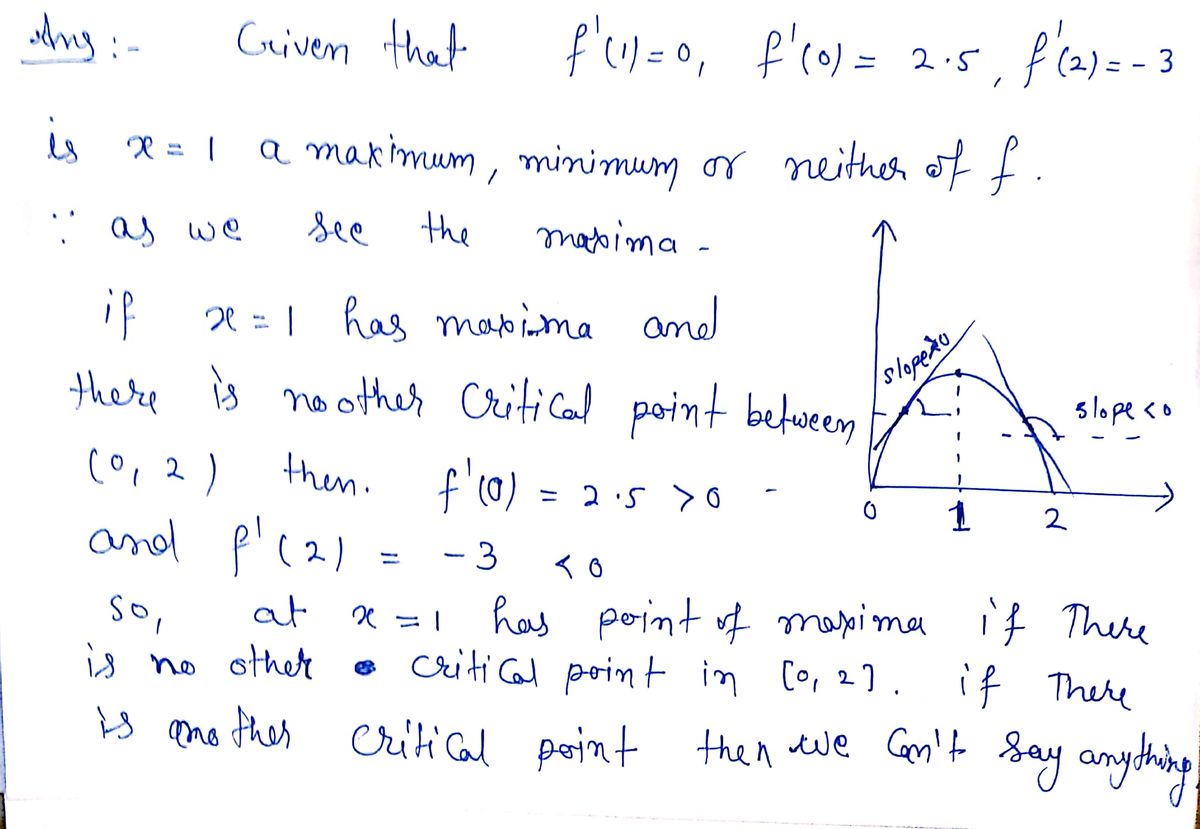 Ans :- Given that f'(1) = 0, f'(0) = 2.5, f'(2) = - 3
is x = 1 a maximum, minimum or neither of f.
∵ as we see the maxima -
if x = 1 has maxima and
there is no other Critical point between
(0, 2) then. f'(0) = 2.5 > 0 -
and f'(2) = - 3 < 0
so, at x = 1 has point of maxima if There
is no other critical point in [0, 2]. if There
is another critical point then we Can't say anything
slope>0
slope <0
0 1 2